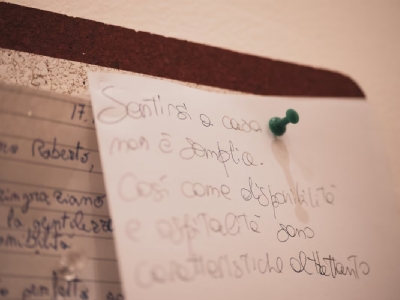 17.
Roberto,
ringraziamo
la gentilezz
nibilità
Sentirsi a casa
non è semplice.
Così come disponibilità
e ospitalità sono
caratteristiche altrettanto